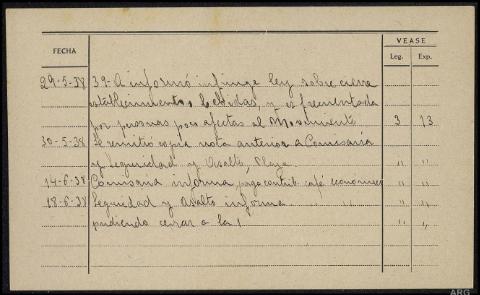 VEASE
FECHA
Leg. Exp.
29-5-38 39- A informó infringe ley sobre cierre
establecimientos bebidas, y es frecuentada
por personas poco afectas al Movimiento 3 13
30-5-38 Se remitió copia nota anterior a Comisaría
y Seguridad y Asalto, Plaza " "
14-6-38 Comisaria informa, pago contrib. café economico " "
18-6-38 Seguridad y Asalto informa " "
pudiendo cerrar a la 1 " "
ARG